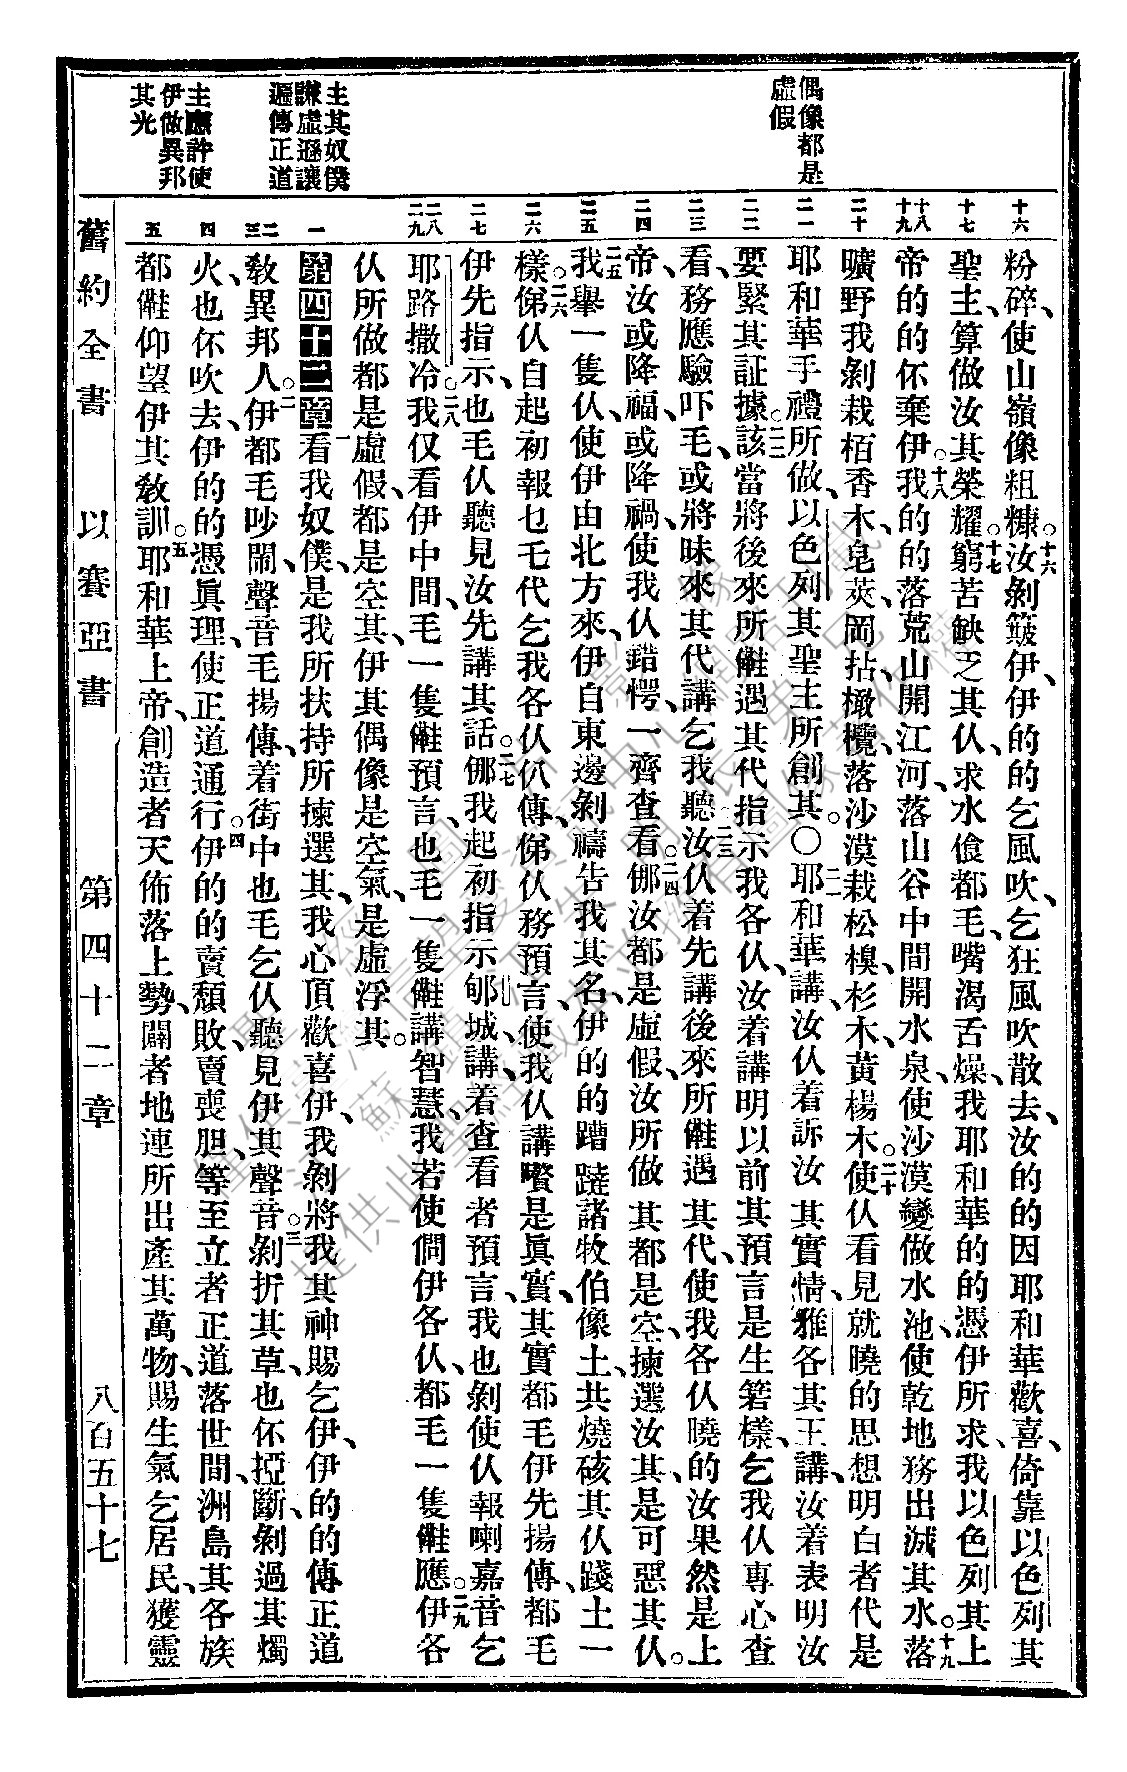 偶像都是
虛假
主其奴僕
謙虛遜讓
遍傳正道
主應許使
伊做異邦
其光
十六
十七
十八
十九
二十
二一
二二
二三
二四
二五
二六
二七
二八
二九
一
二
三
四
五
粉碎、使山嶺像粗糠。十六汝剝簸伊、伊的的乞風吹、乞狂風吹散去、汝的的因耶和華歡喜、倚靠以色列其
聖主、算做汝其榮耀。十七窮苦缺乏其仈、求水儉都毛、嘴渴舌燥、我耶和華的的憑伊所求、我以色列其上
帝的的伓棄伊。十八我的的落荒山開江河、落山谷中間開水泉、使沙漠變做水池、使乾地務出減其水。十九落
曠野我剝栽栢香木、皂莢岡拈橄欖、落沙漠栽松槺、杉木、黃楊木。二十使仈看見就曉的思想明白者代是
耶和華手禮所做、以色列其聖主所創其。〇二一耶和華講、汝仈着訴汝其實情、雅各其王講、汝着表明汝
要緊其証據。二二該當將後來所㒄遇其代指示我各仈、汝着講明以前其預言是生箬樣、乞我仈專心查
看、務應驗吓毛、或將昧來其代講乞我聽。二三汝仈着先講後來所㒄遇其代、使我各仈曉的汝果然是上
帝、汝或降福、或降禍、使我仈錯愕、一齊查看。二四㑚汝都是虛假、汝所做其都是空、揀選汝其、是可惡其仈。
二五我舉一隻仈、使伊由北方來、伊自東邊剝禱告我其名、伊的的蹧蹺諸牧伯像土、共燒硋其仈踐土一
樣。二六俤仈自起初報乜乇代乞我各仈仈傳、俤仈務預言、使我仈講嚽是眞實、其實都毛伊先揚傳、都毛
伊先指示、也毛仈聽見汝先講其話。二七㑚我起初指示郇城講、着查看者預言、我也剝使仈報喇嘉音乞
耶路撒冷。二八我仅看伊中間、毛一隻㒄預言、也毛一隻㒄講智慧、我若使問伊各仈、都毛一隻㒄應。二九伊各
仈所做都是虛假、都是空其、伊其偶像是空氣、是虛浮其。
第四十二章一看我奴僕、是我所扶持所揀選其、我心頂歡喜伊、我剝將我其神賜乞伊、伊的的傳正道
敎異邦人。二伊都毛吵鬧、聲音毛揚傳、着街中也毛乞仈聽見伊其聲音。三剝折其草、也伓掗斷、剝過其燭
火、也伓吹去、伊的的憑眞理、使正道通行。四伊的的賣頹敗、賣喪胆、等至立者正道落世間、洲島其各族
都㒄仰望伊其敎訓。五耶和華上帝、創造者天佈落上勢、闢者地連所出產其萬物、賜生氣乞居民、獲靈
舊約全書 以賽亞書 第四十二章 八百五十七